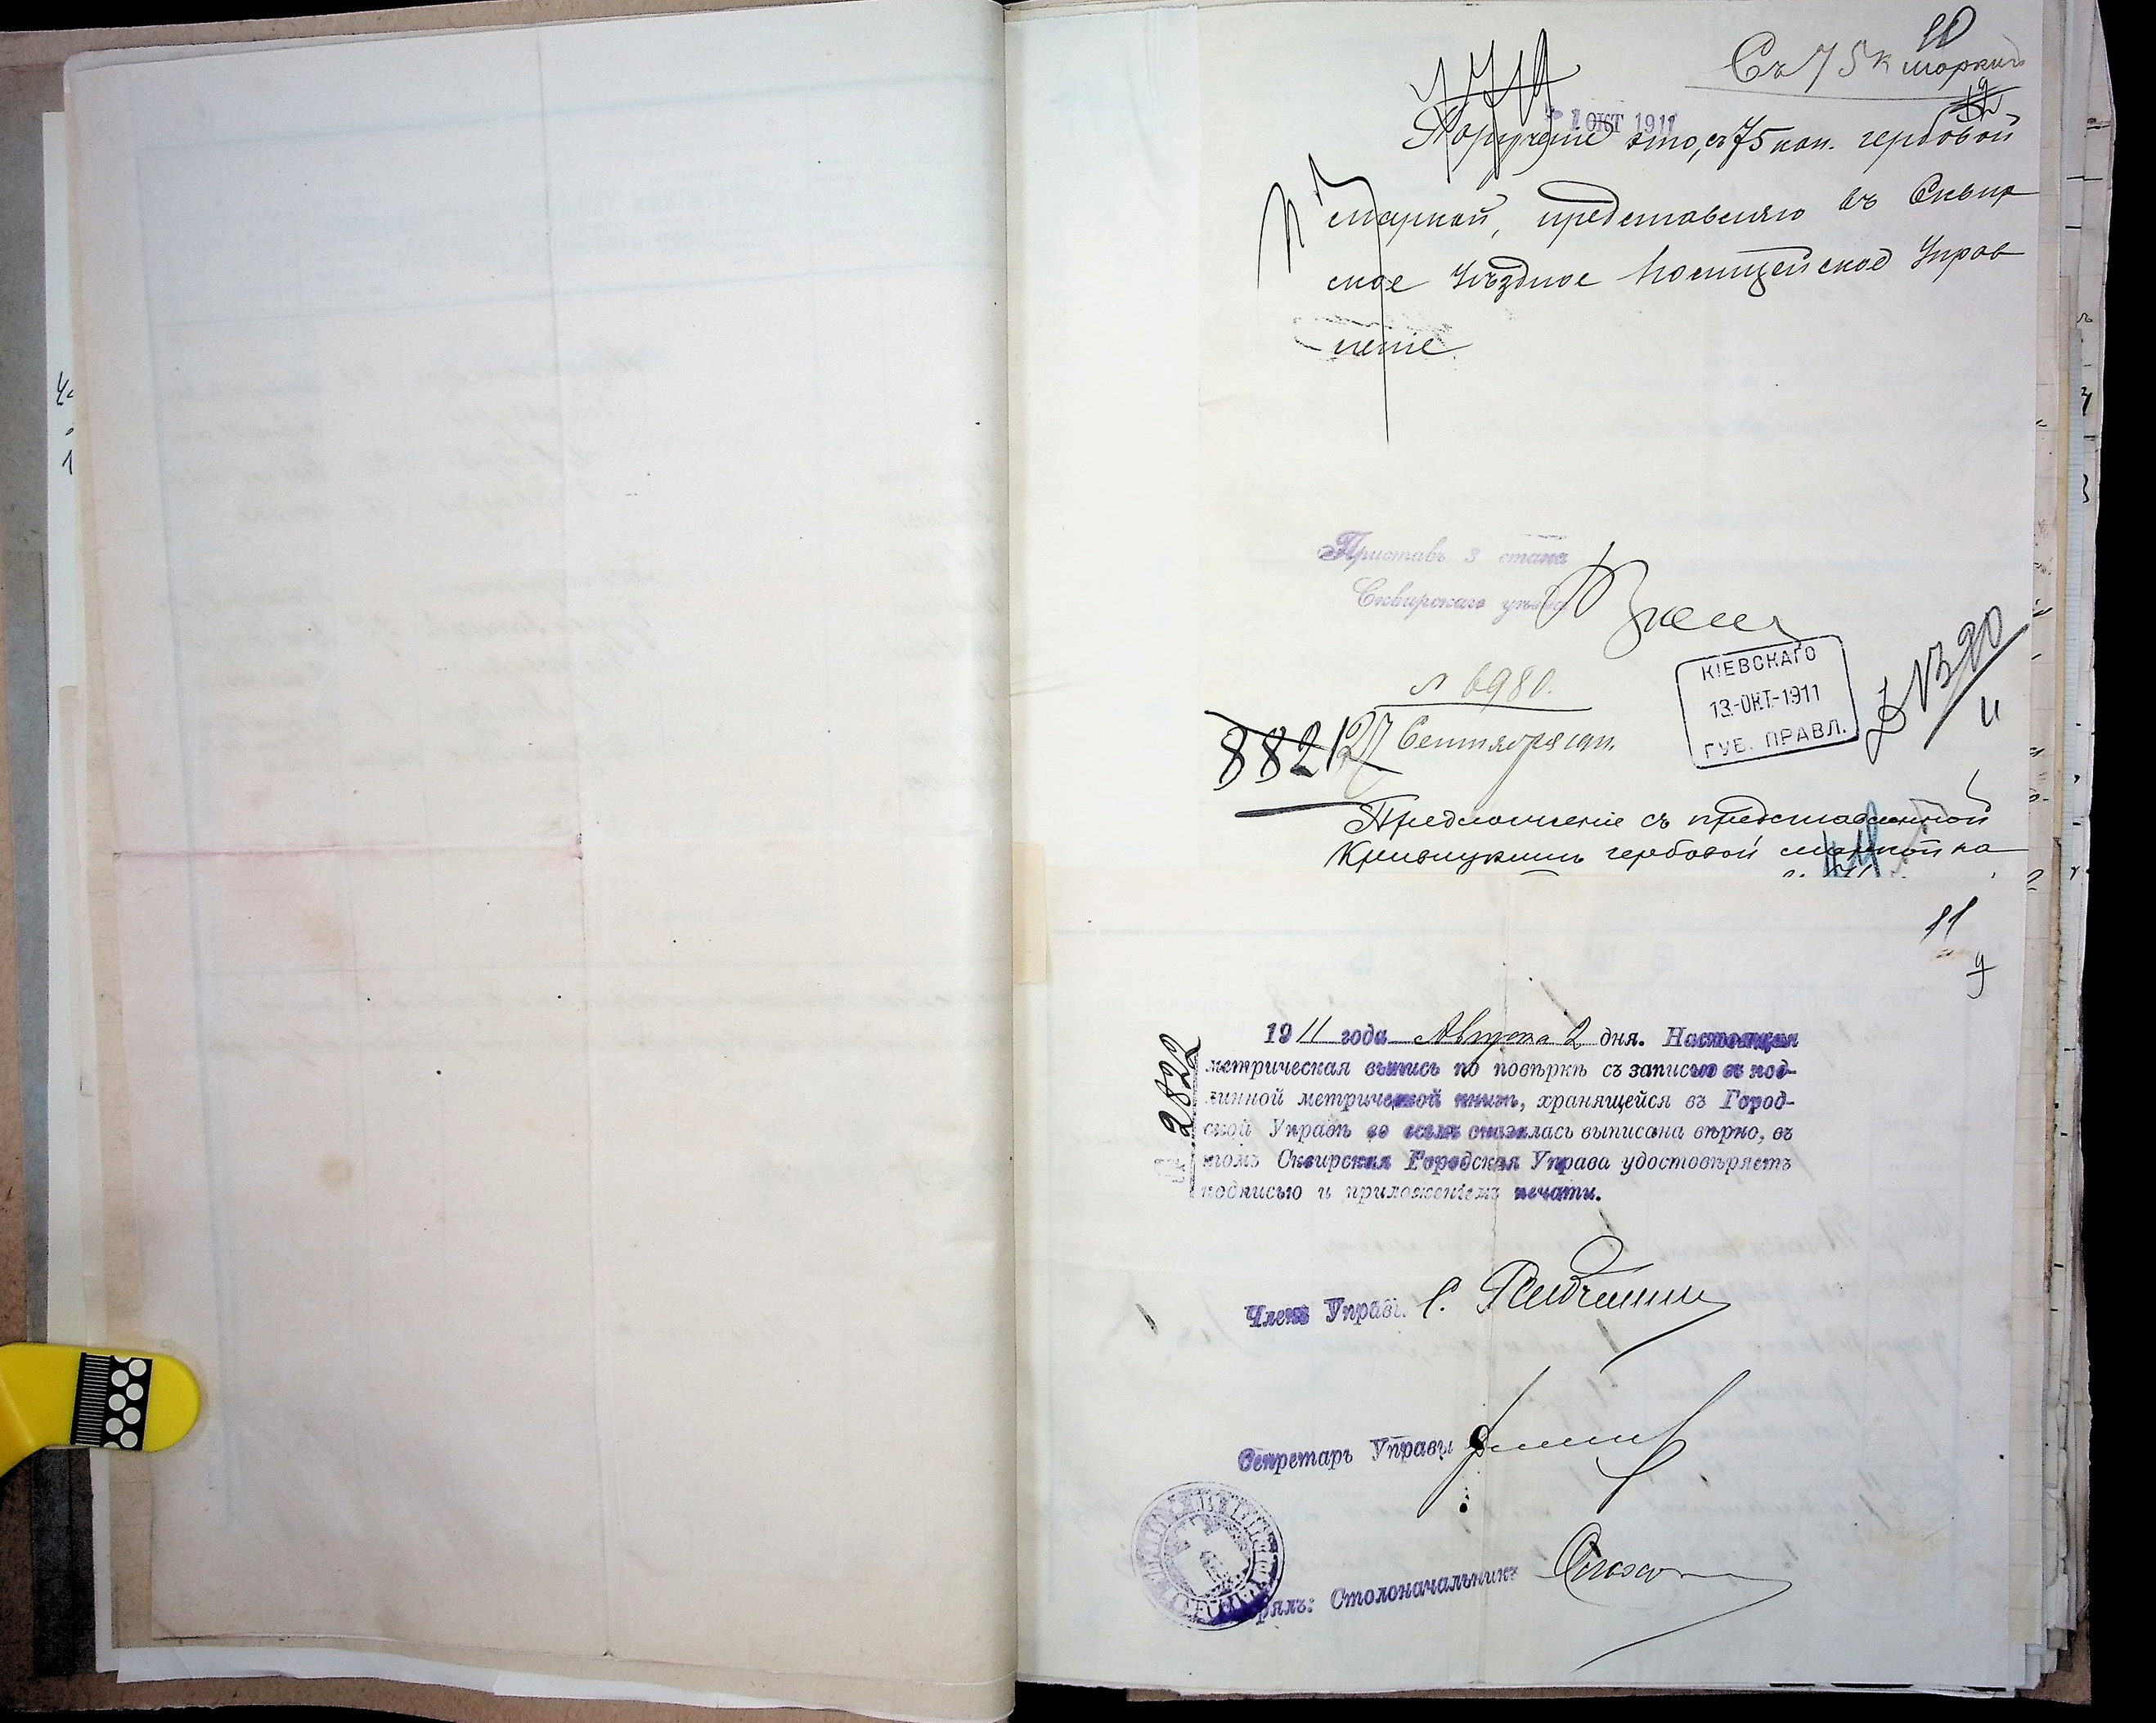 10
Съ 75 к марки
12
774
1 ОКТ 1911
Порученіе это, съ 75 коп. гербовой
маркой, представляю въ Сквир
ское Уѣздное Полицейское Управ
леніе.
Приставъ 3 стана
Сквирскаго уѣзда
№ 6980.
27 Сентября 1911.
8821
КІЕВСКАГО
13-ОКТ-1911
ГУБ. ПРАВЛ.
Предложеніе съ представленной
гербовой маркой на
11
9
2822
1911 года Августа 2 дня. Настоящая
метрическая выпись по повѣркѣ съ записью въ под-
линной метрической книгѣ, хранящейся въ Город-
ской Управѣ во всемъ оказалась выписана вѣрно, въ
томъ Сквирская Городская Управа удостовѣряетъ
подписью и приложеніемъ печати.
Членъ Управы С.
Секретарь Управы
Столоначальникъ